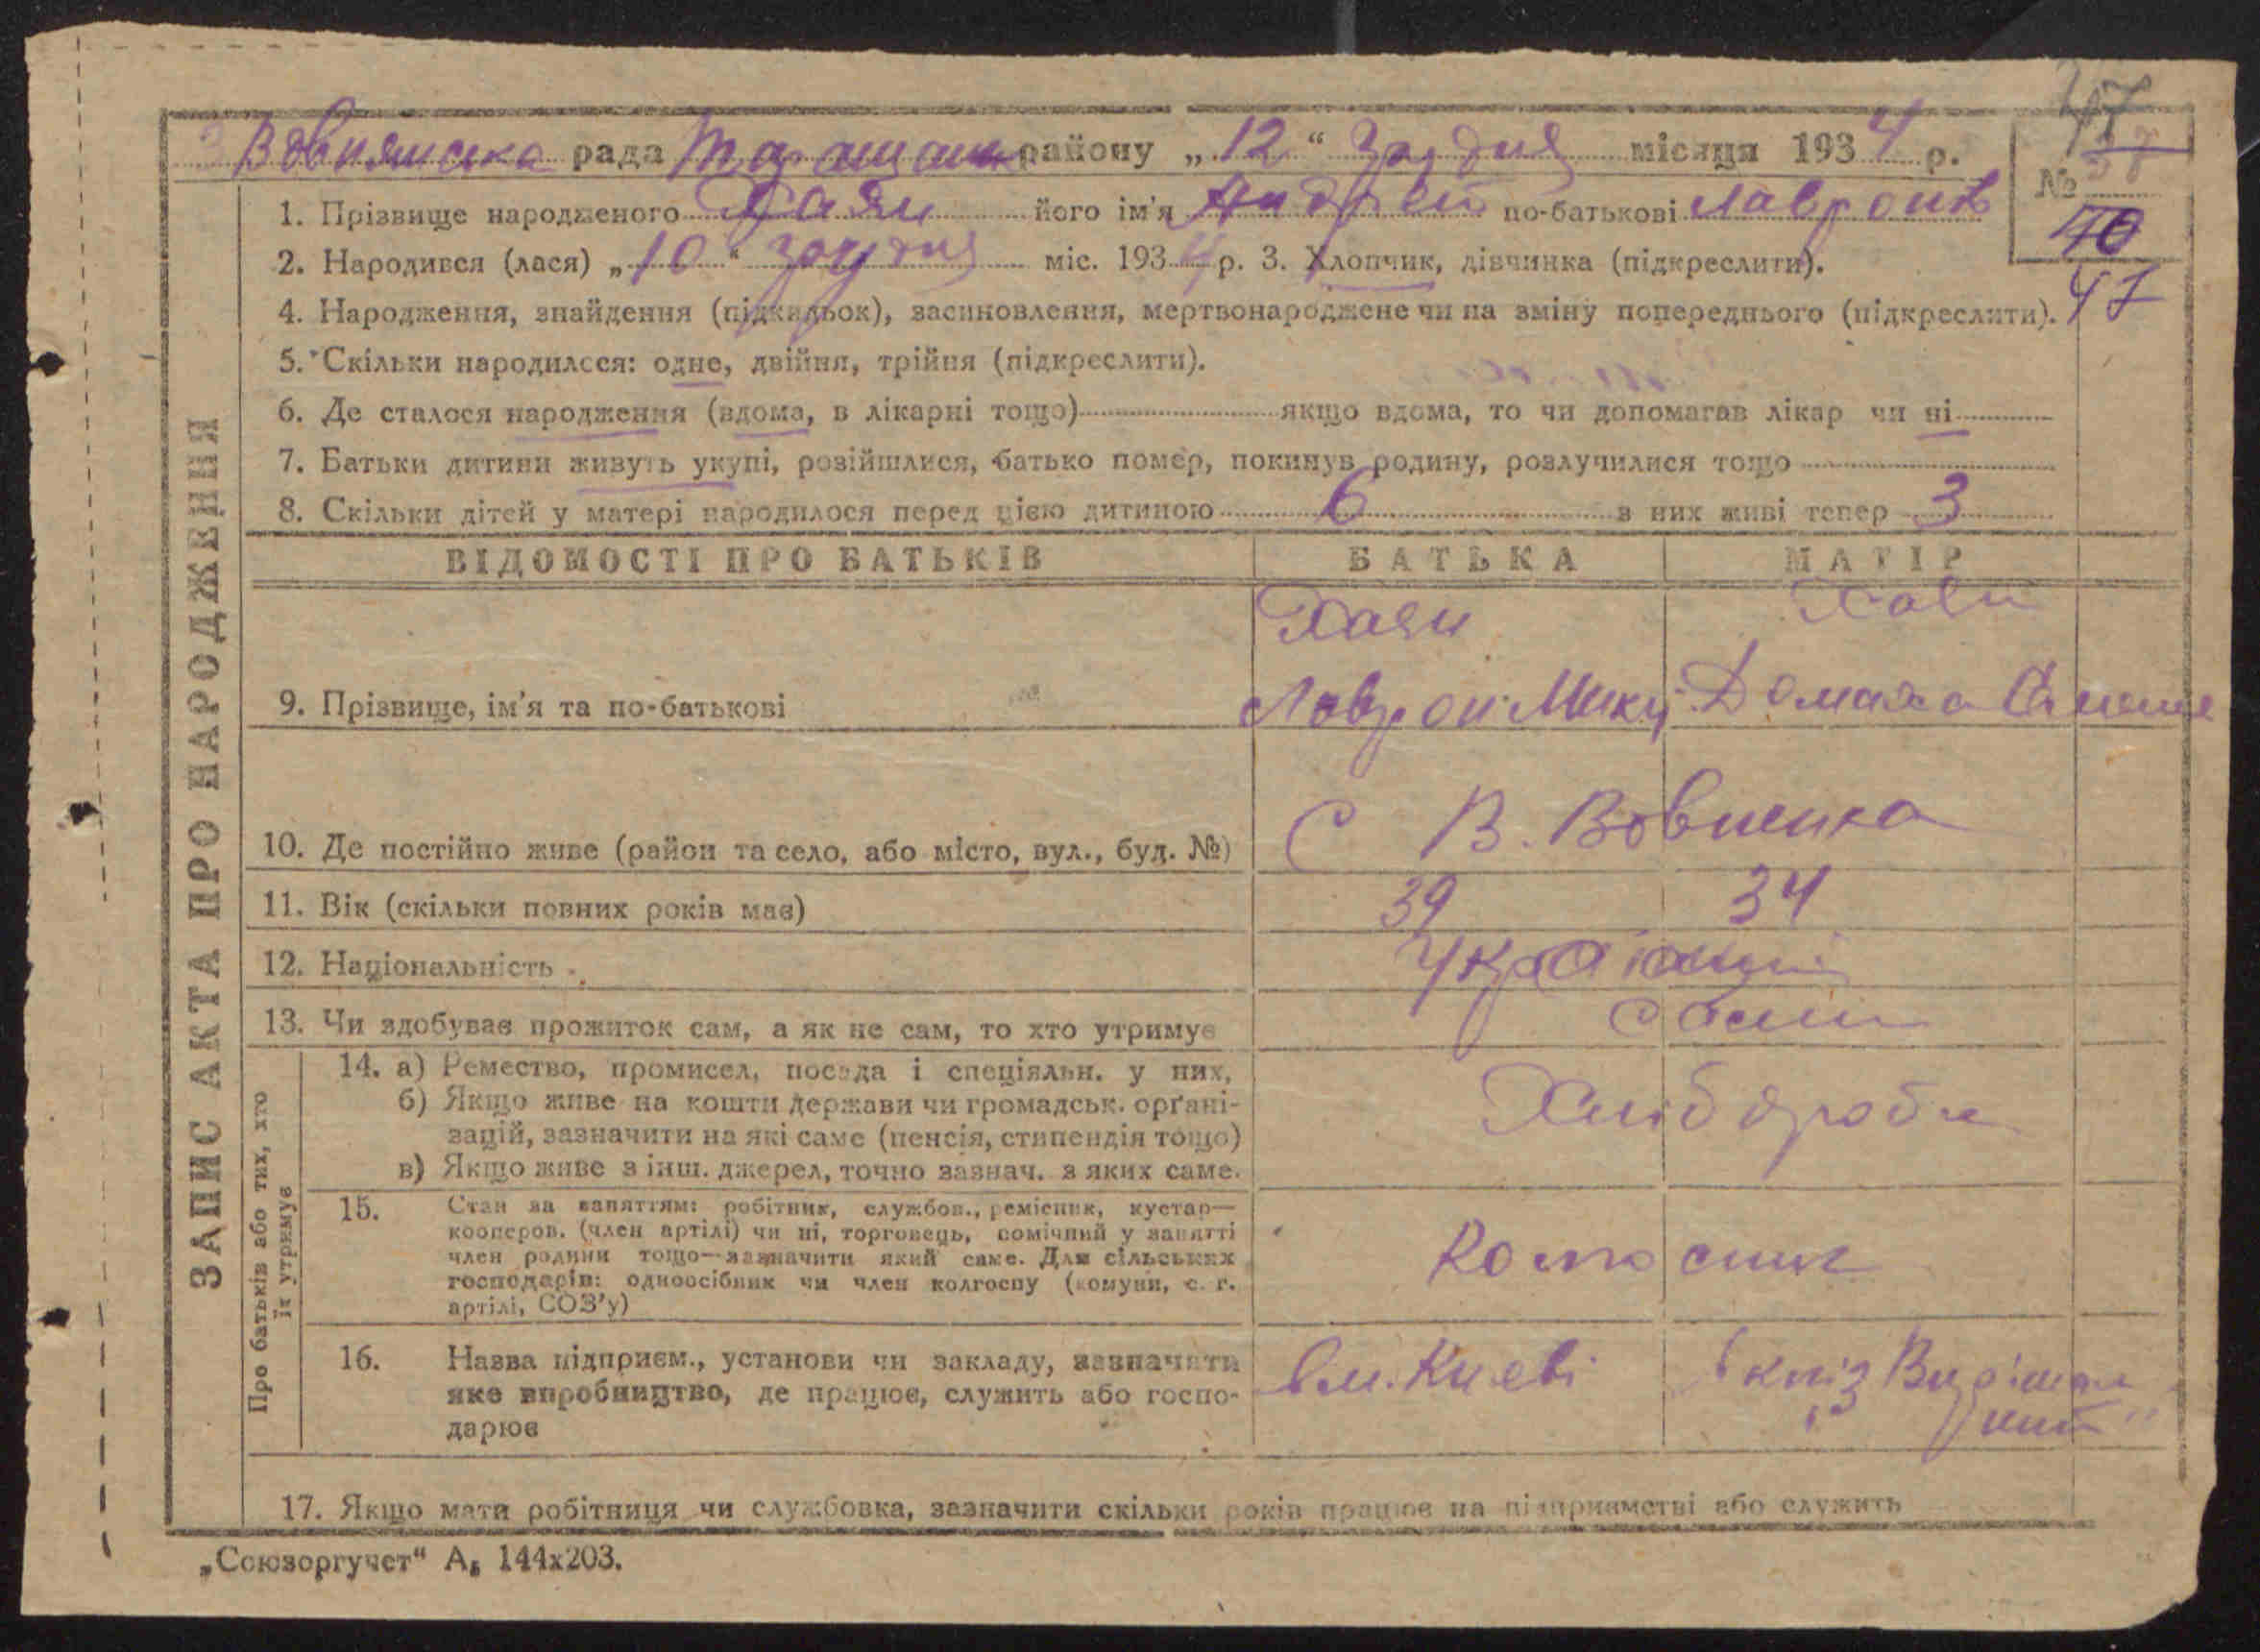 47
Вовнянська рада Таращан району „12“ грудня місяця 1934 р.
№ 37
40
47
1. Прізвище народженого Хаян його ім'я Андрей по-батькові Лавронів
2. Народився (лася) „10“ грудня міс. 1934 р. 3. Хлопчик, дівчинка (підкреслити).
4. Народження, знайдення (підкидьок), засиновлення, мертвонароджене чи на зміну попереднього (підкреслити).
5. Скільки народилося: одне, двійня, трійня (підкреслити).
6. Де сталося народження (вдома, в лікарні тощо) якщо вдома, то чи допомагав лікар чи ні
7. Батьки дитини живуть укупі, розійшлися, батько помер, покинув родину, розлучилися тощо
8. Скільки дітей у матері народилося перед цією дитиною 6 з них живі тепер 3
ВІДОМОСТІ ПРО БАТЬКІВ БАТЬКА МАТІР
Хаян
9. Прізвище, ім'я та по-батькові Лаврон Мики Домаха
10. Де постійно живе (район та село, або місто, вул., буд. №) С В. Вовнянка
11. Вік (скільки повних років має) 39 34
12. Національність Українці
13. Чи здобуває прожиток сам, а як не сам, то хто утримує сами
14. а) Ремество, промисел, посада і спеціяльн. у них,
б) Якщо живе на кошти держави чи громадськ. орґані-
зацій, зазначити на які саме (пенсія, стипендія тощо)
в) Якщо живе з інш. джерел, точно зазнач. з яких саме.
Хлібороби
15. Стан за заняттям: робітник, службов., ремісник, кустар—
кооперов. (член артілі) чи ні, торговець, помічний у занятті
член родини тощо—зазначити який саме. Для сільських
господарів: одноосібник чи член колгоспу (комуни, с. г.
артілі, СОЗ'у)
16. Назва підприєм., установи чи закладу, зазначити
яке виробництво, де працює, служить або госпо-
дарює
в м. Києві
17. Якщо мати робітниця чи службовка, зазначити скільки років працює на підприємстві або служить
ЗАПИС АКТА ПРО НАРОДЖЕННЯ
Про батьків або тих, хто
їх утримує
„Союзоргучет“ А₅ 144х203.